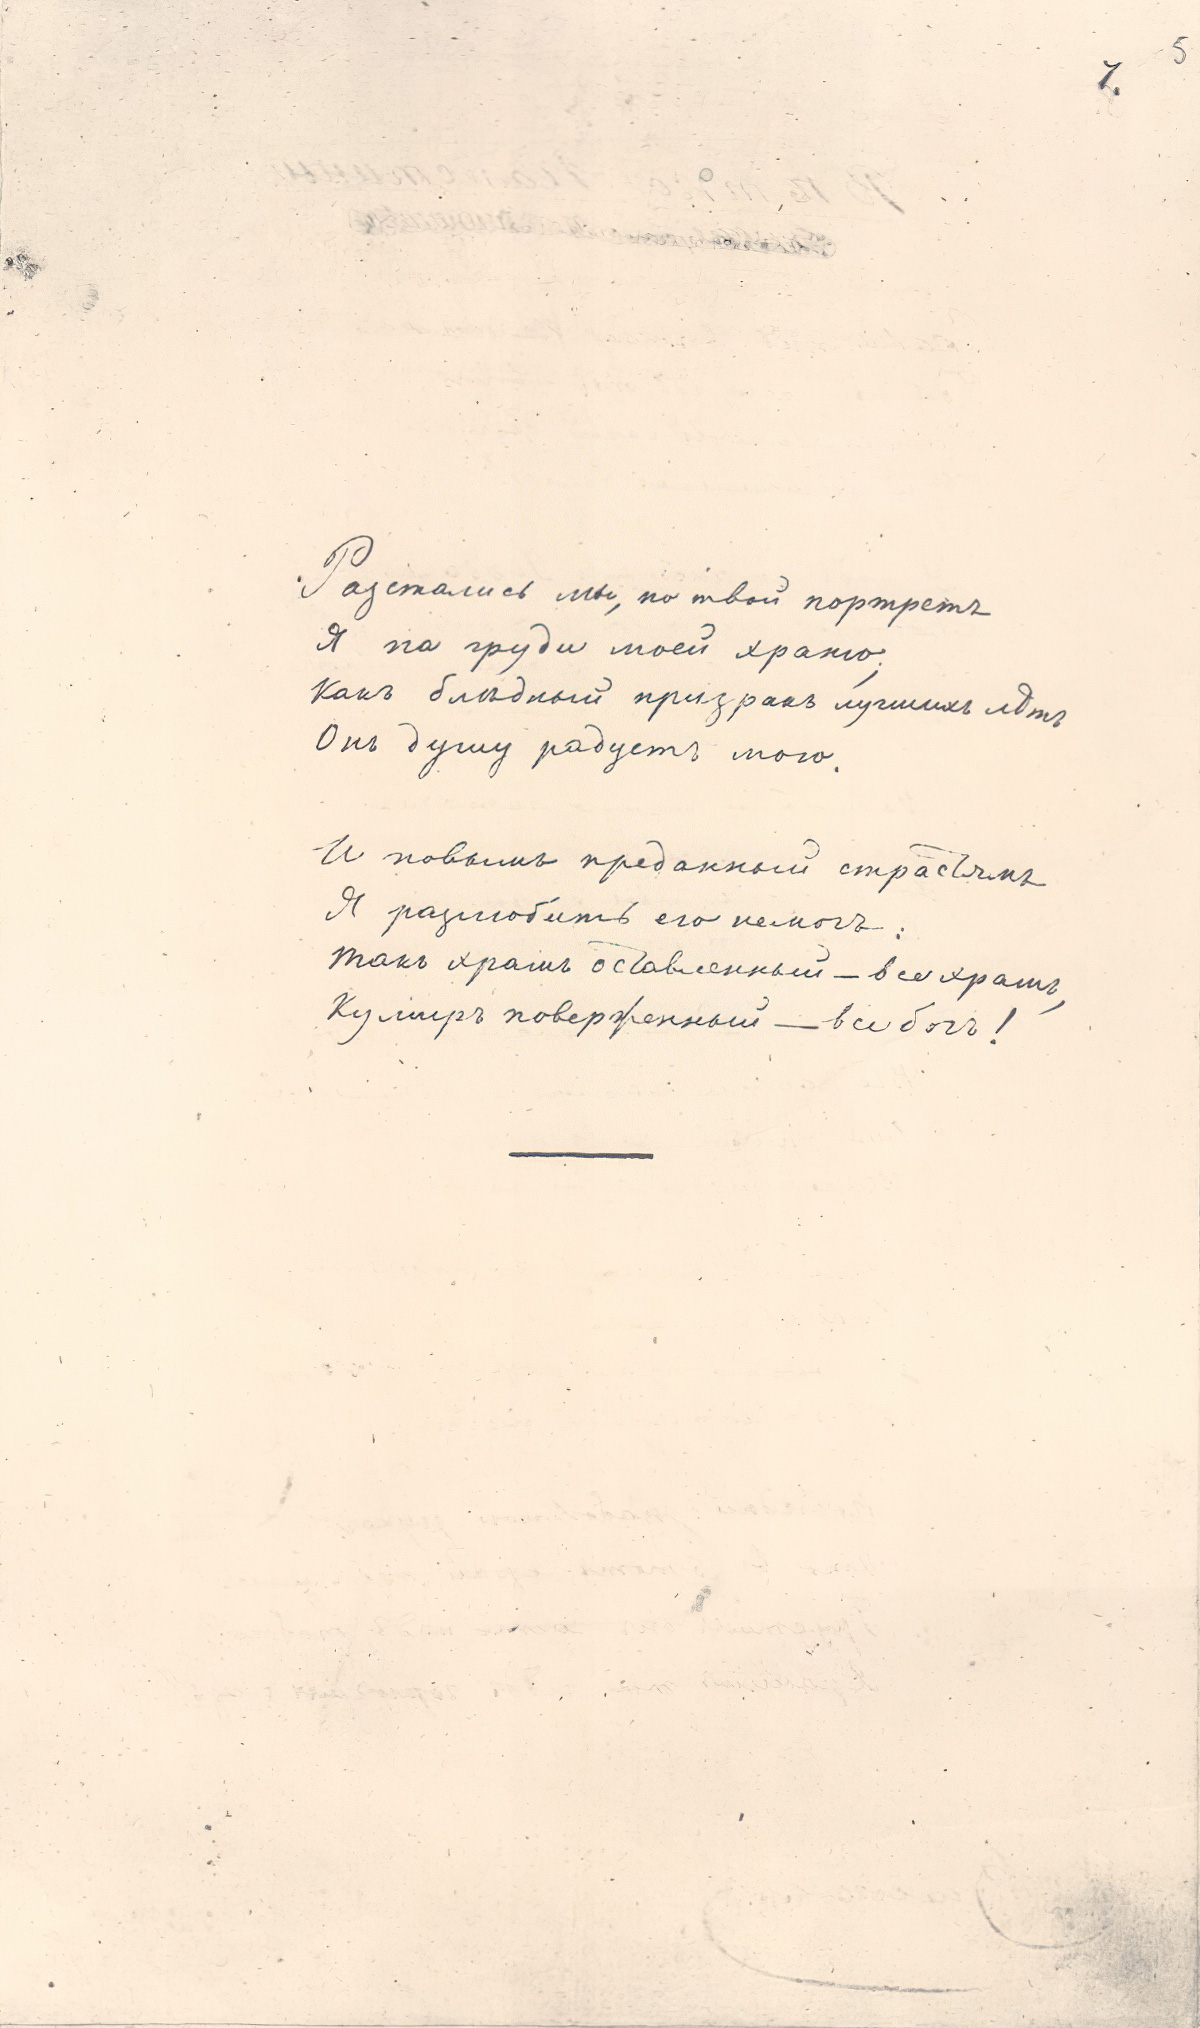 5
7.
Разстались мы, но твой портретъ
Я на груди моей храню;
Какъ блѣдный призракъ лучшихъ лѣтъ
Онъ душу радуетъ мою.
И новымъ преданный страстямъ
Я разлюбить его не могъ:
Такъ храмъ оставленный — все храмъ,
Кумиръ поверженный — все богъ!